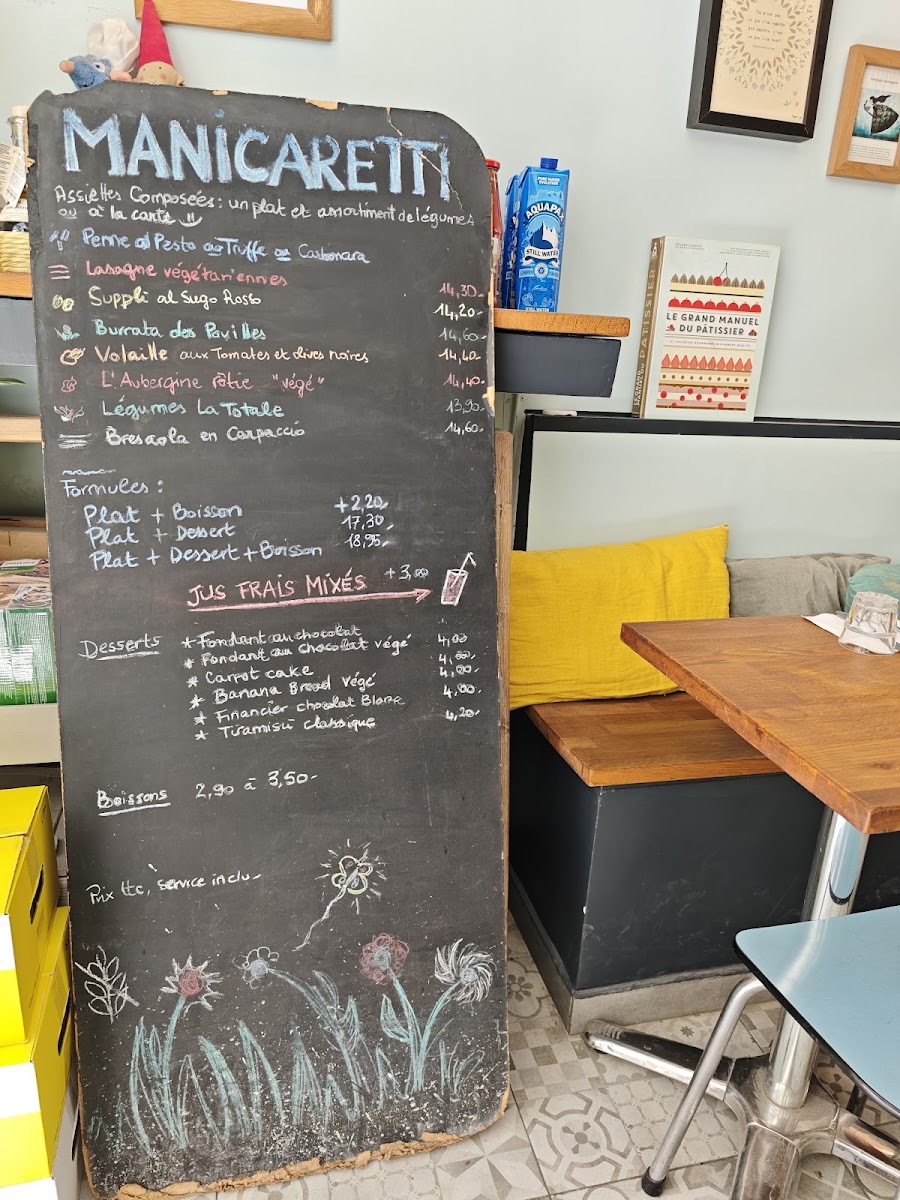 MANICARETTI
Assiettes Composées : un plat et assortiment de légumes
ou à la carte
Penne al Pesto ou Truffe ou Carbonara
Lasagne végétariennes 14,30.-
Suppli al Sugo Rosso 14,20.-
Burrata des Pouilles 14,60.-
Volaille aux Tomates et olives noires 14,40.-
L'Aubergine rôtie "végé" 14,40.-
Légumes La Totale 13,90.-
Bresaola en Carpaccio 14,60.-
Formules :
Plat + Boisson +2,20.-
Plat + Dessert 17,30.-
Plat + Dessert + Boisson 18,95.-
JUS FRAIS MIXÉS +3,00
Desserts
* Fondant au chocolat 4,00
* Fondant au chocolat végé 4,00.-
* Carrot cake 4,00.-
* Banana Bread végé 4,00.-
* Financier chocolat Blanc
* Tiramisù classique 4,20.-
Boissons 2,90 à 3,50.-
Prix ttc, service inclu.-
PURE WATER
AQUAPAX
STILL WATER
PÂTISSIER
LE GRAND MANUEL
DU PÂTISSIER